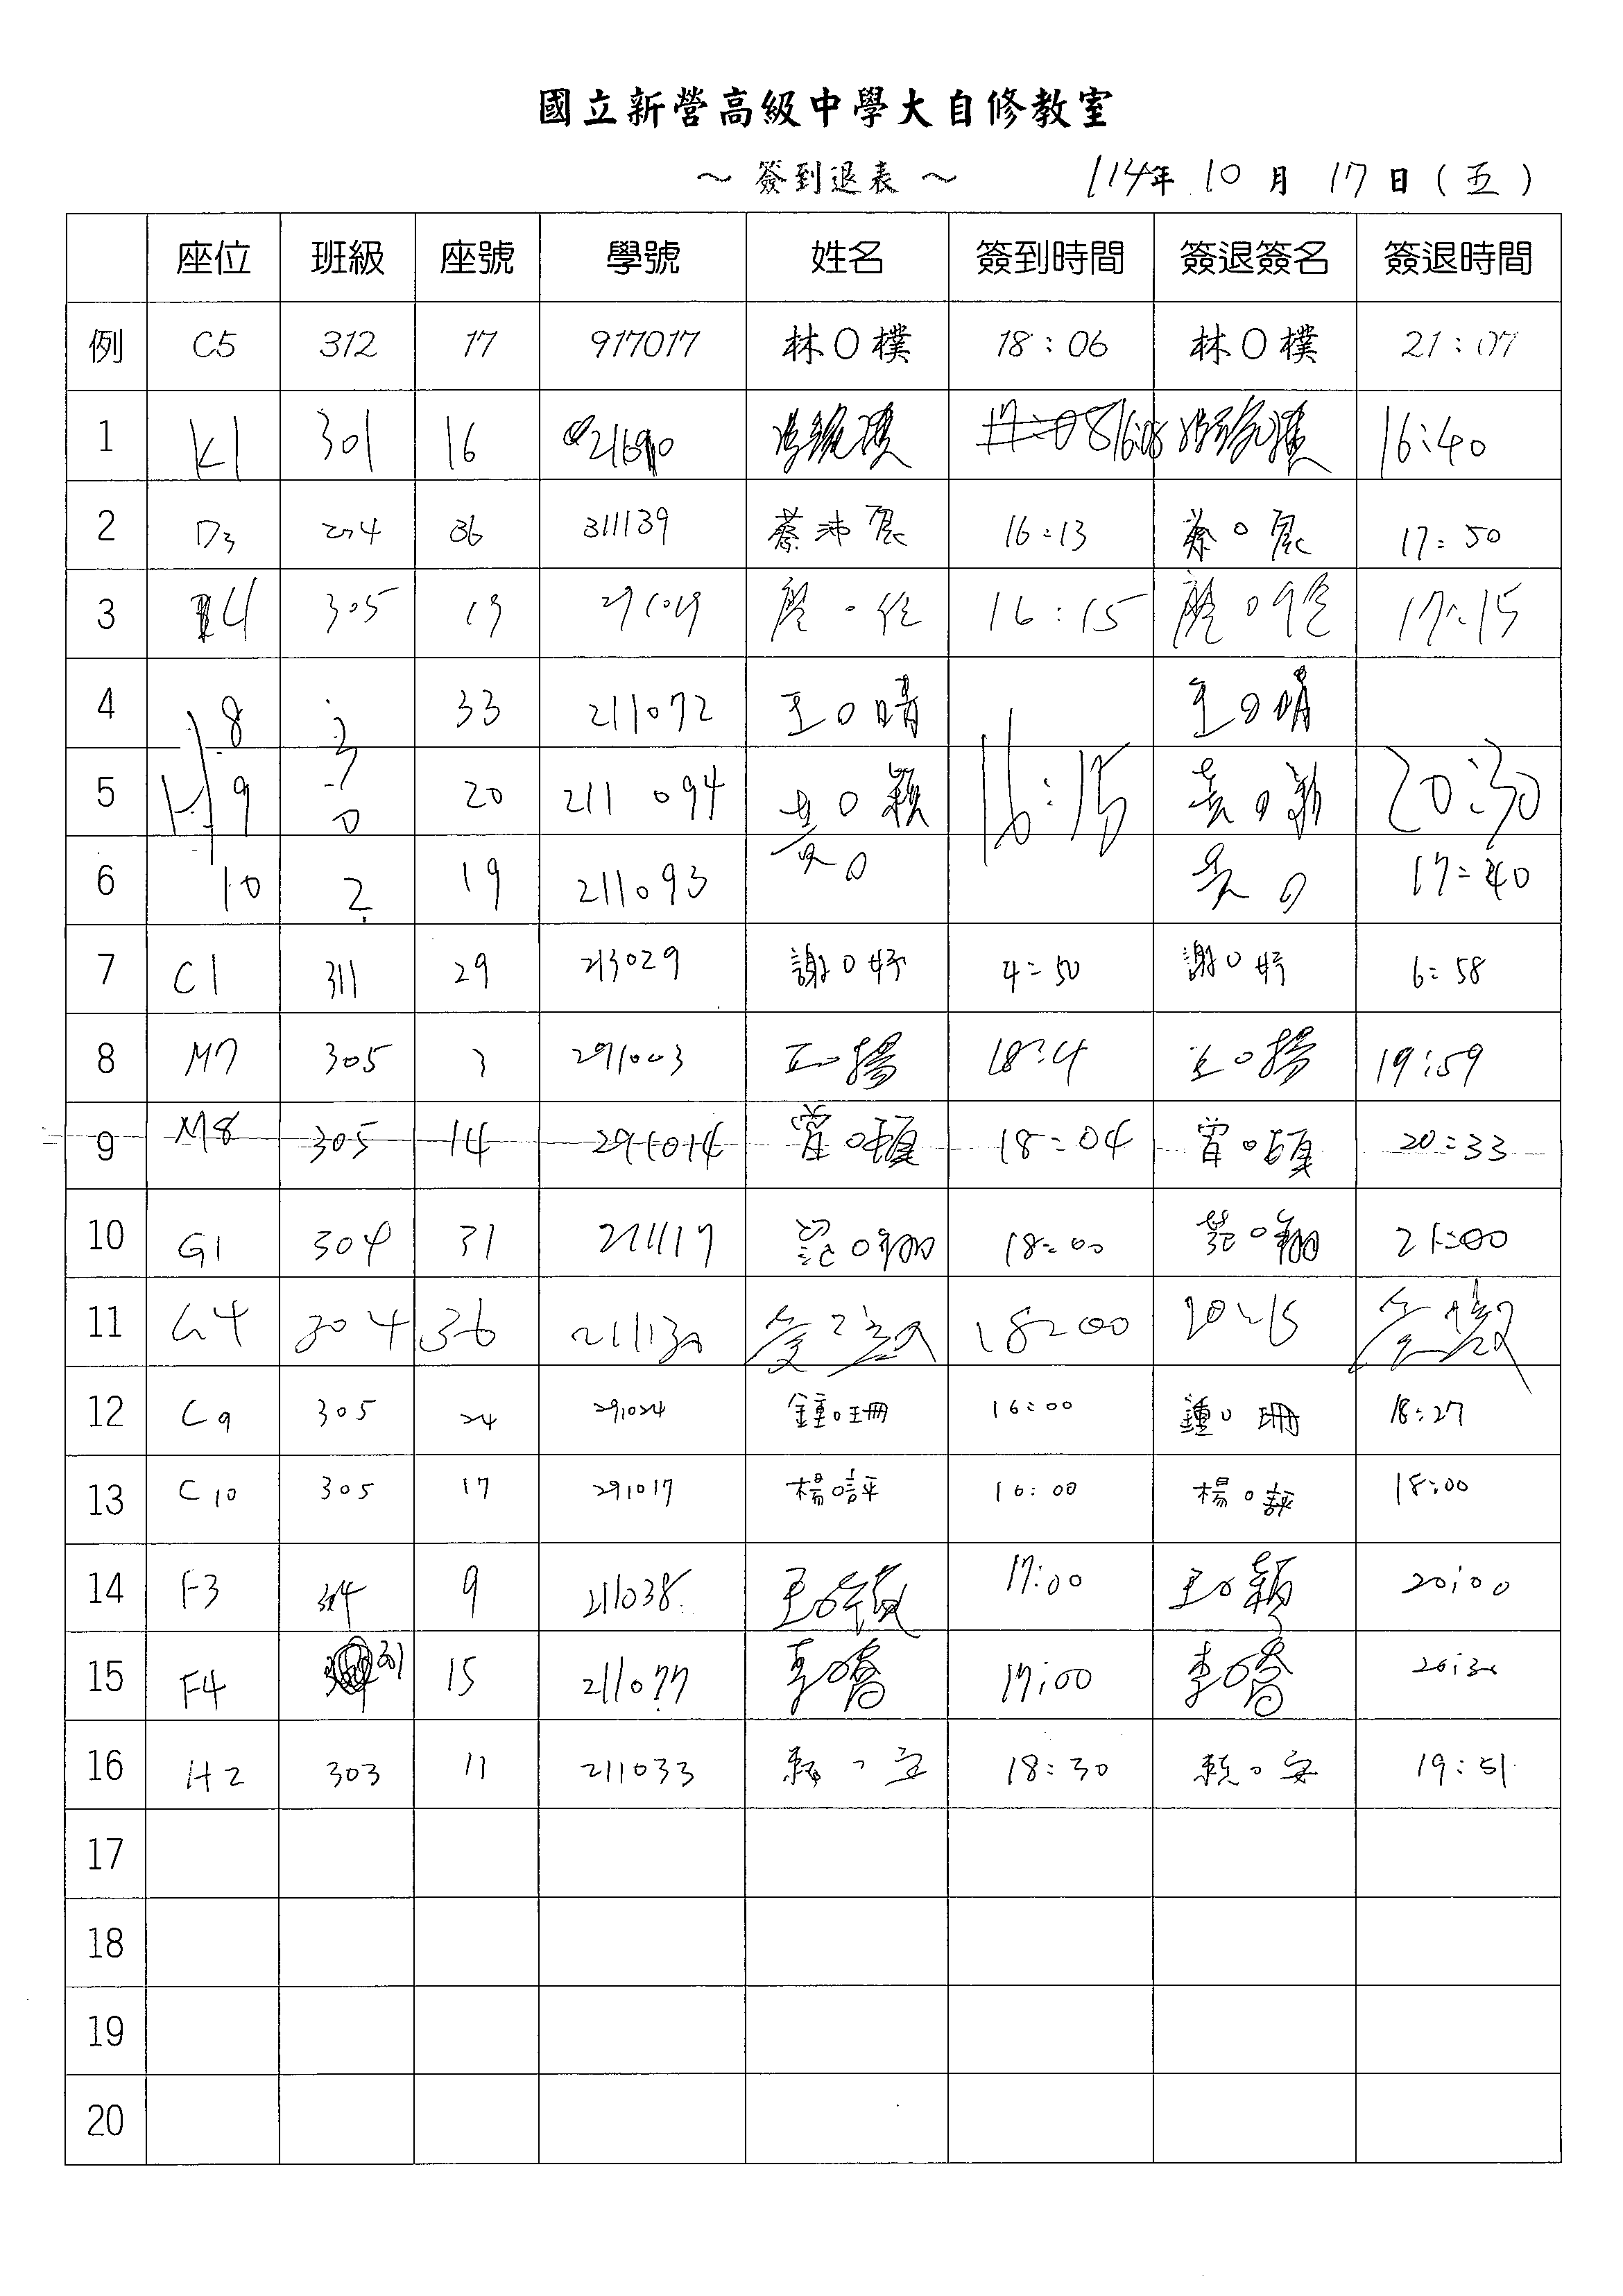 國立新營高級中學大自修教室
～ 簽到退表 ～ 114年 10 月 17 日 ( 五 )
座位 班級 座號 學號 姓名 簽到時間 簽退簽名 簽退時間
例 C5 312 17 917017 林O樸 18:06 林O樸 21:07
1 K1 301 16 16:08 16:40
2 D3 204 36 311139 蔡沛宸 16:13 蔡O宸 17:50
3 305 19 291019 廖 16:15 廖 17:15
4 8 33 211072 王O晴 王O晴
5 H 9 3 0 20 211094 黃O穎 16:15 黃O穎 20:30
6 10 2 19 211093 黃O 黃O 17:40
7 C1 311 29 213029 謝O妤 4:50 謝O妤 6:58
8 M7 305 3 291003 王O揚 18:4 王O揚 19:59
9 M8 305 14 291014 18:04 20:33
10 G1 304 31 211117 范O翔 18:00 范O翔 21:00
11 G4 304 36 18:00 20:15
12 C9 305 24 291024 鍾O珊 16:00 鍾O珊 18:27
13 C10 305 17 291017 楊O評 16:00 楊O評 18:00
14 F3 304 9 211038 王O穎 17:00 王O穎 20:00
15 F4 301 15 211077 李O喬 17:00 李O喬 20:30
16 H2 303 11 211033 賴O安 18:30 賴O安 19:51
17
18
19
20